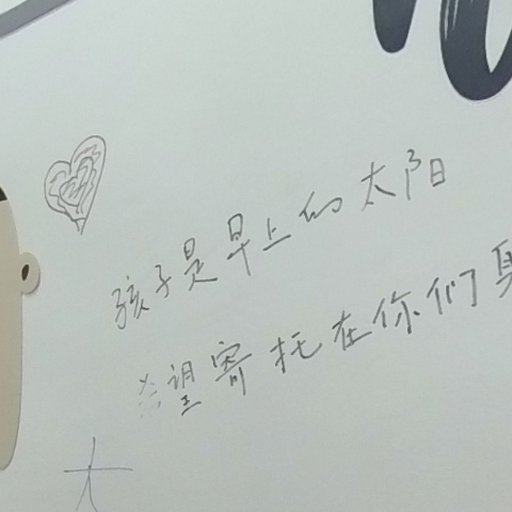 孩子是早上的太阳
希望寄托在你们身
大